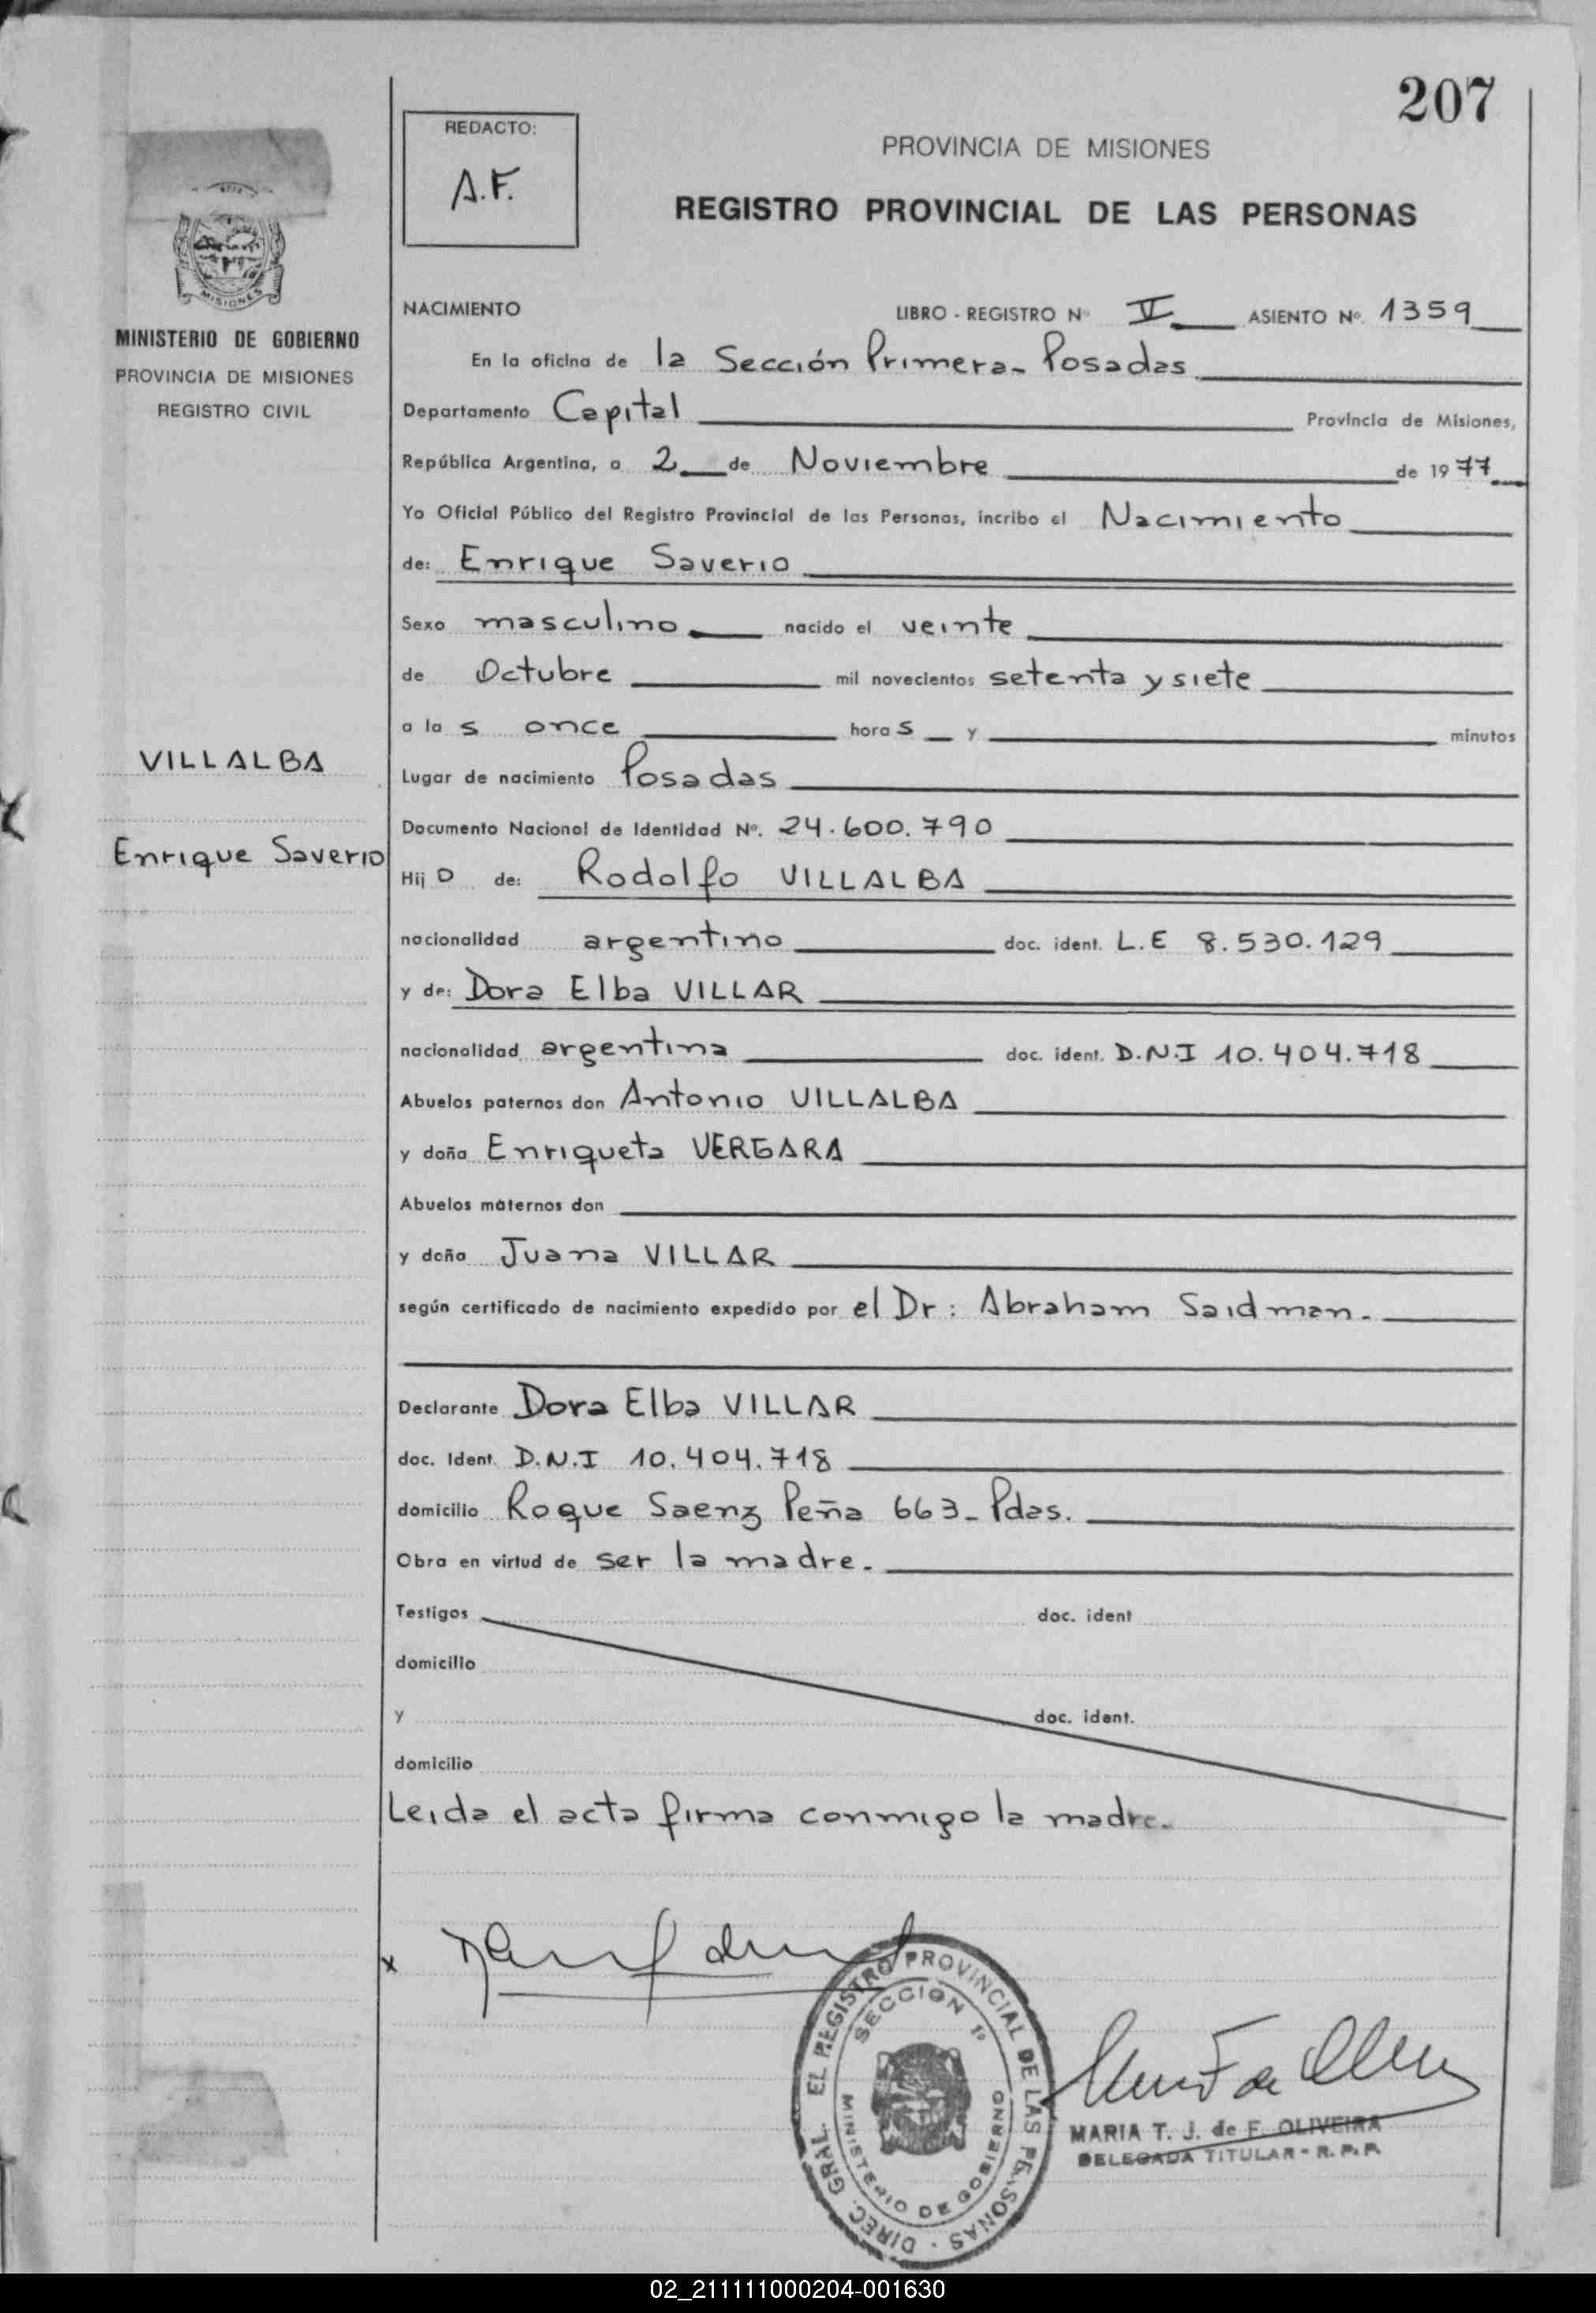 207
REDACTO:
A.F.
PROVINCIA DE MISIONES
REGISTRO PROVINCIAL DE LAS PERSONAS
MISIONES
MINISTERIO DE GOBIERNO
PROVINCIA DE MISIONES
REGISTRO CIVIL
NACIMIENTO LIBRO - REGISTRO Nº V ASIENTO Nº. 1359
En la oficina de la Sección Primera - Posadas
Departamento Capital Provincia de Misiones,
República Argentina, a 2 de Noviembre de 1977
Yo Oficial Público del Registro Provincial de las Personas, incribo el Nacimiento
de: Enrique Saverio
Sexo masculino nacido el veinte
de Octubre mil novecientos setenta y siete
a la s once hora s y minutos
VILLALBA
Enrique Saverio
Lugar de nacimiento Posadas
Documento Nacional de Identidad Nº. 24.600.790
Hij o de: Rodolfo VILLALBA
nacionalidad argentino doc. ident. L.E 8.530.129
y de: Dora Elba VILLAR
nacionalidad argentina doc. ident. D.N.I 10.404.718
Abuelos paternos don Antonio VILLALBA
y doña Enriqueta VERGARA
Abuelos maternos don
y doña Juana VILLAR
según certificado de nacimiento expedido por el Dr: Abraham Saidman.
Declarante Dora Elba VILLAR
doc. Ident. D.N.I 10.404.718
domicilio Roque Saenz Peña 663 - Pdas.
Obra en virtud de ser la madre.
Testigos doc. ident
domicilio
y doc. ident.
domicilio
Leida el acta firma conmigo la madre.
x
DIREC. GRAL. EL REGISTRO PROVINCIAL DE LAS PERSONAS
SECCION 1º
MINISTERIO DE GOBIERNO
MARIA T. J. de F. OLIVEIRA
DELEGADA TITULAR - R. P. P.
02_211111000204-001630